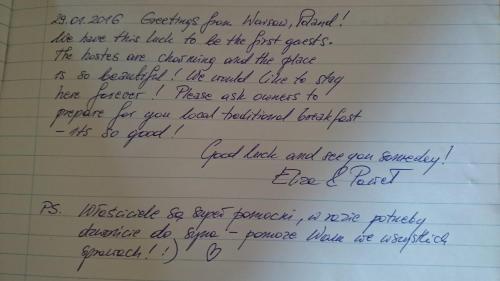 29.01.2016 Greetings from Warsaw, Poland!
We have this luck to be the first guests.
The hostes are charming and the place
is so beautiful! We would like to stay
here forever! Please ask owners to
prepare for you local traditional breakfast
- its so good!
Good luck and see you someday!
Eliza & Paweł
PS. Właściciele są super pomocni, w razie potrzeby
dzwońcie do syna - pomoże Wam we wszystkich
sprawach! :)